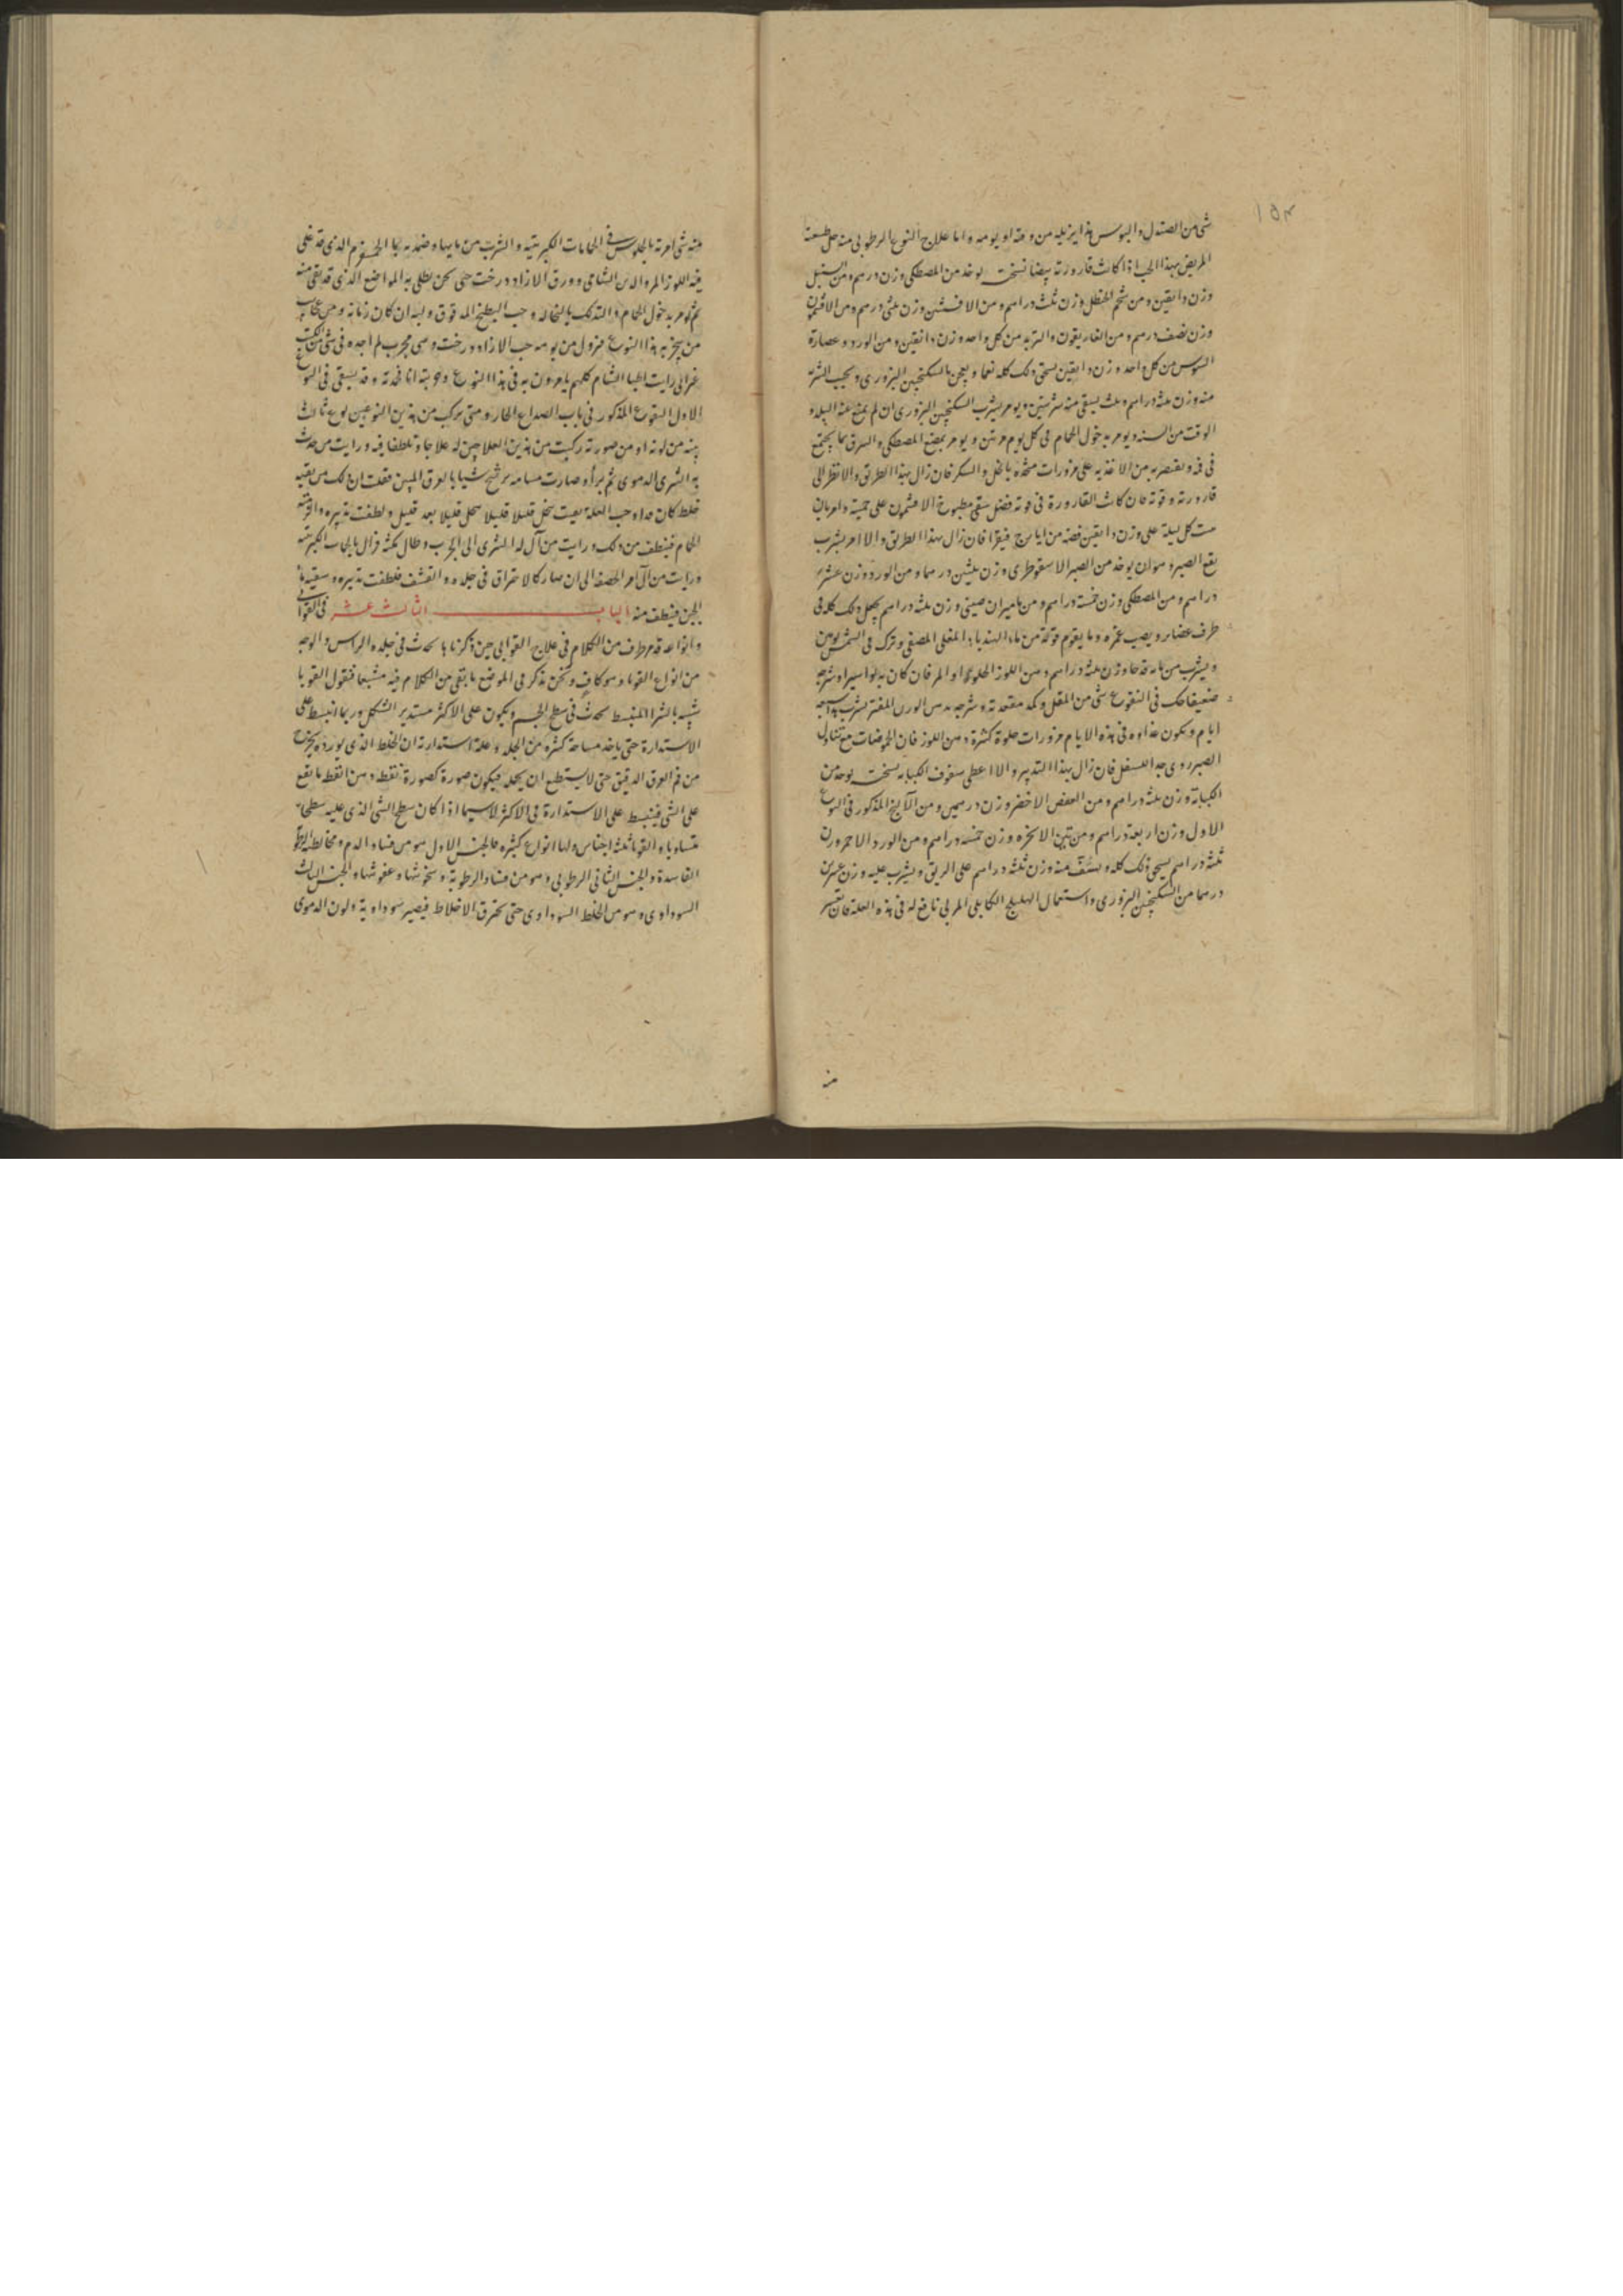 ١٥٣
شى من الصندل والبوس هذا يزيله من وقته او يومه واما علاج النوع الرطوبى منه حل طبيعة
المريض بهذا الحب اذا كانت قارورته بيضا نسخته يوخذ من المصطكى وزن درهم ومن السنبل
وزن دانقين ومن شحم الحنظل وزن ثلث دراهم ومن الافسنتين وزن ثلثى درهم ومن الافتيمون
وزن نصف درهم ومن الغاريقون والتربد من كل واحد وزن دانقين ومن الورد وعصارة
السوس من كل واحد وزن دانقين يسحق ذلك كله نعما ويعجن بالسكنجبين البزورى ويحبب الشربة
منه وزن ثلثة دراهم وثلث يسقى منه شربتين ويومر بشرب السكنجبين البزورى ان لم يمنع عنه البلد و
الوقت من السنه ويومر بدخول الحمام فى كل يوم مرتين ويومر بمضغ المصطكى والبزق بما يجتمع
فى فمه ويقتصر به من الاغذيه على مزورات متخذه بالخل والسكر فان زال بهذا الطريق والا انظر الى
قارورته وقوته فان كانت القارورة فى قوته فضل سقى مطبوخ الافتيمون على حميته وامر بان
كل ليلة على وزن دانقين فضه من ايارج فيقرا فان زال بهذا الطريق والا امر بشرب
نقع الصبر وهو ان يوخذ من الصبر الاسقوطرى وزن ثلثين درهما ومن الورد وزن عشرة
دراهم ومن المصطكى وزن خمسة دراهم ومن ماميران صينى وزن ثلثة دراهم يجعل ذلك كله فى
ظرف غضار ويصب غمره وما يقوم فوقه من ماء الهندبا المغلى المصفى وترك فى الشمس يومين
ويشرب من مايه قدحا وزن ثلثة دراهم دهن اللوز الحلو او المر فان كان به بواسير او شرجه
ضعيفا حك فى النقوع شى من المقل وكمد مقعدته وشرجه بدهن الورد المفتر يشرب هذا سبعة
ايام ويكون غذاوه فى هذه الايام مزورات حلوة كثيرة دهن اللوز فان الحموضات مع تناول
الصبر ردى جدا للسفل فان زال بهذا التدبير والا اعطى سفوف الكبابه نسخته يوخذ من
الكبابة وزن ثلثة دراهم ومن العفص الاخضر وزن درهمين ومن الآيارج المذكور فى النوع
الاول وزن اربعة دراهم ومن تبن الاذخر وزن خمسة دراهم ومن الورد الاحمر وزن
ثلثة دراهم يسحق ذلك كله ويسف منه وزن ثلثة دراهم على الريق ويشرب عليه وزن عشرين
درهما من السكنجبين البزورى واستعمال الهليلج الكابلى المربى نافع له فى هذه العلة فان تعسر
منه
منه شى امرته بالجلوس فى الحمامات الكبريتيه والشرب من مايها وضمد به بما الحصرم الذى قد غلى
فيه اللوز المر والدبس الشامى وورق الازاد درخت حتى يخن يطلى به المواضع الذى قد بقى منه
ثم يومر بدخول الحمام والتدلك بالنخاله وحب البطيخ المدقوق ولبه ان كان زمانه ومن عجايب
من يتخر به هذا النوع فيزول من يومه حب الازاد درخت وهى مجرب لم اجده فى شى من الكتب
غير انى رايت اطبا الشام كلهم يامرون به فى هذا النوع وجربته انا فحمدته وقد يسقى فى النوع
الاول النقوع المذكور فى باب الصداع الحار ومتى يركب من هذين النوعين نوع ثالث
يبينه من لونه او من صورته ركبت من هذين العلاجين له علاجا وتلطفنا فيه ورايت من حدث
به الشرى الدموى ثم برأ وصارت مسامه يرشح شيا بالعرق المبين فقلت ان ذلك من بقيه
خلط كان مداوحب العلة بقيت تحل قليلا قليلا تحل قليلا بعد قليل ولطفت تدبيره والزمته
الحمام فينظف من ذلك ورايت من آل له الشرى الى الجرب وطال مكثه فزال بالحمات الكبريتيه
ورايت من آل امر الحصف الى ان صار كالاحتراق فى جلده والقشف فلطفت تدبيره وسقيته ما
الجبن فينظف منه الباب الثالث عشر فى القوابى
وانواعه قد مر طرف من الكلام فى علاج القوابى حين ذكرنا ما يحدث فى جلده الراس والوجه
من انواع القوبا وهو كاف ونحن نذكر فى الموضع ما بقى من الكلام فيه مشبعا فنقول القوبا
شبيه بالشرا المنبسط يحدث فى سطح الجسم ويكون على الاكثر مستدير الشكل وربما انبسط على
الاستدارة حتى ياخذ مساحة كثيره من الجلد وعلة استدارته ان الخلط الذى يورده يخرج
من فم العرق الدقيق حتى لا يستطيع ان يحله فيكون صورة كصورة نقط دهن انقط ما تقع
على الشى فينبسط على الاستدارة فى الاكثر لا سيما اذا كان سطح الشى الذى عليه سطحا
متساويا والقوبا ثلثة اجناس ولها انواع كثيره فالجنس الاول هو من فساد الدم ومخالطه الرطوبة
الفاسدة والجنس الثانى الرطوبى وهو من فساد الرطوبة وسخونتها وعفونتها والجنس الثالث
السوداوى وهو من الخلط السوداوى حتى تحترق الاخلاط فيصير سوداوية ولون الدموى